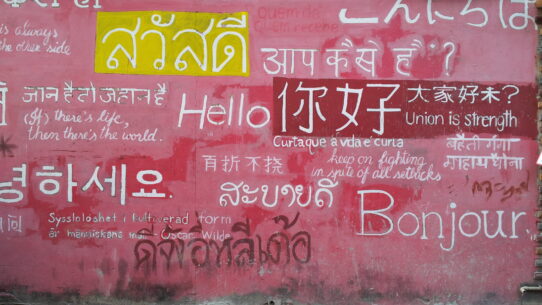 สวัสดี
こんにちは
is always
the other side
आप कैसे हैं ?
जान है तो जहान है
(If) there's life,
then there's the world.
Hello
你好
大家好未?
Union is strength
Curta que a vida é curta
keep on fighting
in spite of all setbacks
बहती गंगा
百折不挠
녕하세요.
ສະບາຍດີ
Bonjour
Sysslolöshet i kultiverad form
är människans mål - Oscar Wilde